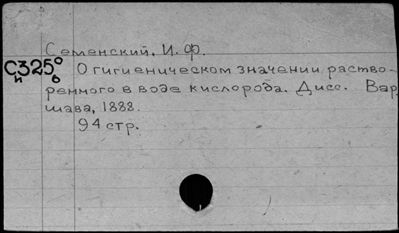 Семенский, И. Ф.
С325° О гигиеническом значении раство-
и в ренного в воде кислорода. Дисс. Вар
шава, 1888.
94 стр.